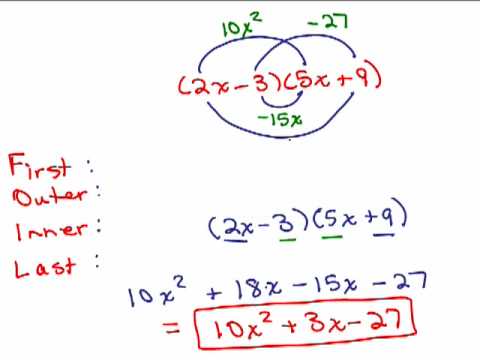 10x² -27
(2x-3)(5x+9)
-15x
First :
Outer :
Inner :
(2x-3)(5x+9)
Last :
10x² + 18x - 15x - 27
= 10x² + 3x - 27